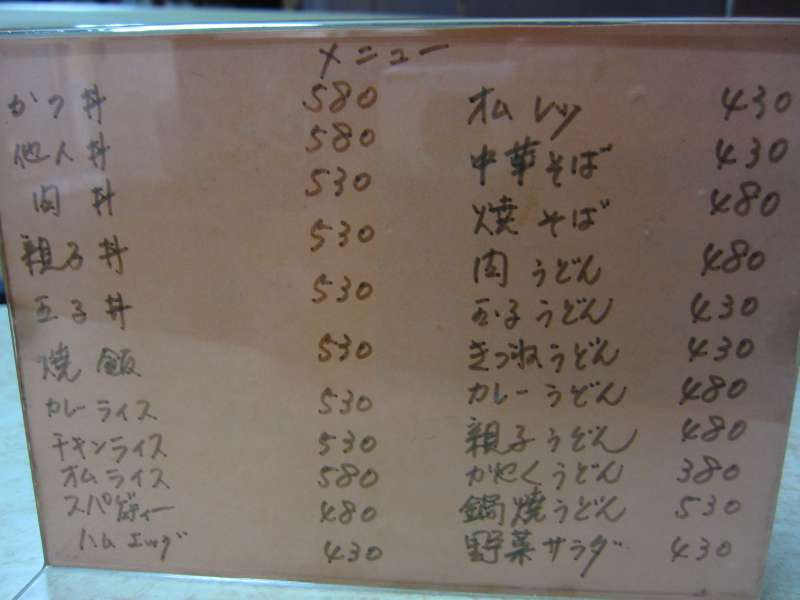 メニュー
かつ丼 580
他人丼 580
肉丼 530
親子丼 530
玉子丼 530
焼飯 530
カレーライス 530
チキンライス 530
オムライス 580
スパゲティー 480
ハムエッグ 430
オムレツ 430
中華そば 430
焼そば 480
肉うどん 480
玉子うどん 430
きつねうどん 430
カレーうどん 480
親子うどん 480
かやくうどん 380
鍋焼うどん 530
野菜サラダ 430